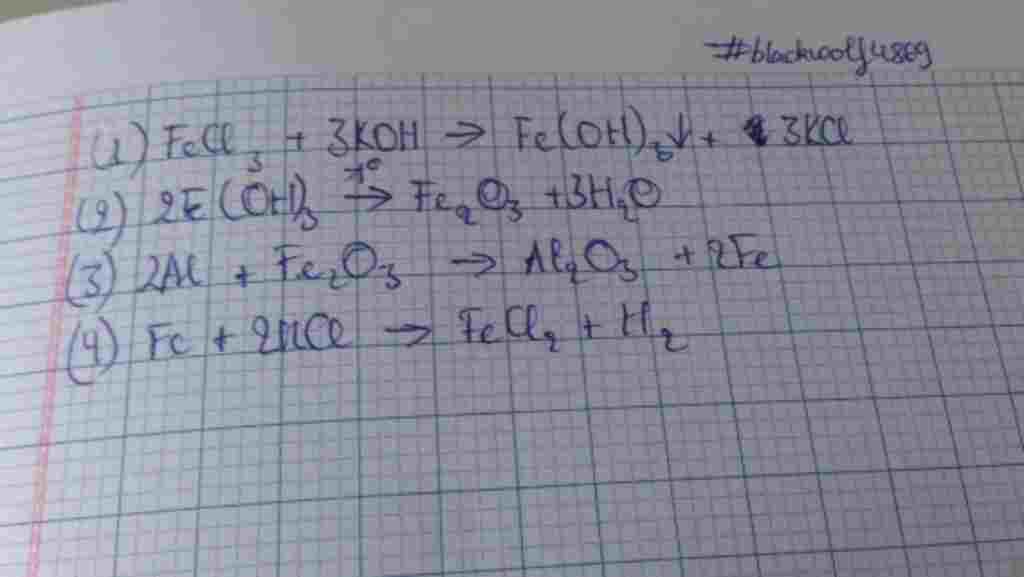 #blackwolf4869
(1) FeCl₃ + 3KOH → Fe(OH)₃↓ + 3KCl
(2) 2F(OH)₃ t° → Fe₂O₃ + 3H₂O
(3) 2Al + Fe₂O₃ → Al₂O₃ + 2Fe
(4) Fe + 2HCl → FeCl₂ + H₂